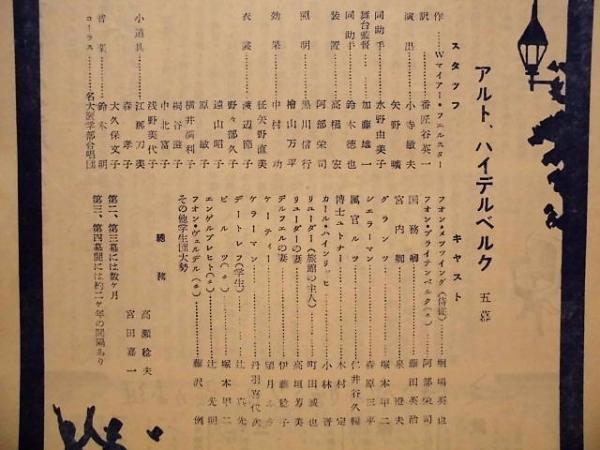 アルト、ハイデルベルク 五幕
スタッフ
作……Wマイアー・フェルスター
訳……番匠谷英一
演出……小寺敏夫
同助手……水野明夫
舞台監督……加藤雄一
同助手……鈴木徳也
装置……高橋宏
阿部栄司
照明……黒川信行
檜山万平
効果……中村功
衣裳……渡辺節子
野々部久子
遠山昭子
原敏子
横井満利子
桐谷滋子
中北富子
浅野美代子
小道具……江那刀美
森孝子
大久保文子
音楽……鈴木明
コーラス……名大医学部合唱団
キャスト
国務卿……藤田英治
宮内卿……泉澄夫
グランツ……塚本甲二
シエラーマン……森原三平
属官ルツ……仁井谷久暢
博士ユトナー……木村定
カール・ハインリッヒ……小林晋
リューダー(旅館の主人)……町田誠也
リューダーの妻……高垣寿美
デルフェルの妻……伊藤稔子
ケーティー……望月ミネ
ケラーマン……丹羽喜代次
デートレフ(学生)……辻真先
ビルツ(〃)……塚本甲二
エンゲルブレヒト(〃)……辻光明
フオン・ヴェルデル(〃)……藤沢例
その他学生団大勢
総務
高瀬稔夫
宮田嘉一
第二、第三幕には数ヶ月
第三、第四幕間には約二ヶ年の間隔あり